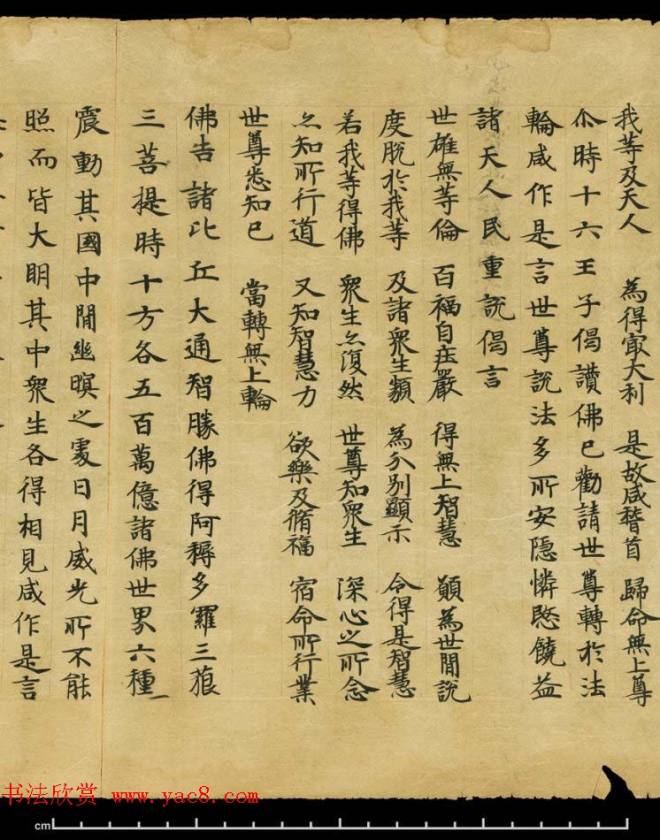 我等及天人 為得㝡大利 是故咸稽首 歸命無上尊
尒時十六王子偈讚佛已勸請世尊轉於法
輪咸作是言世尊說法多所安隱憐愍饒益
諸天人民重說偈言
世雄無等倫 百福自莊嚴 得無上智慧 願為世間說
度脫於我等 及諸衆生類 為分別顯示 令得是智慧
若我等得佛 衆生亦復然 世尊知衆生 深心之所念
亦知所行道 又知智慧力 欲樂及脩福 宿命所行業
世尊悉知已 當轉無上輪
佛告諸比丘大通智勝佛得阿耨多羅三藐
三菩提時十方各五百萬億諸佛世界六種
震動其國中間幽暝之處日月威光所不能
照而皆大明其中衆生各得相見咸作是言
书法欣赏 www.yac8.com
cm